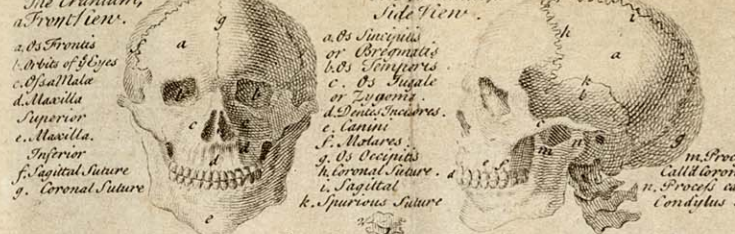 The Cranium,
a Front View.
a. Os Frontis
b. Orbits of ẙ Eyes
c. Ossa Malæ
d. Maxilla
Superior
e. Maxilla.
Inferior
f. Sagittal Suture
g. Coronal Suture
f
g
a
b
b
c
d
e
Side View.
a. Os Sincipitis
or Bregmatis
b. Os Temporis
c. Os Jugale
or Zygoma.
d. Dentes Incisores.
e. Canini
f. Molares.
g. Os Occipitis
h. Coronal Suture.
i. Sagittal
k. Spurious Suture
h
i
a
k
b
c
m
n
g
d
e
f
m. Proc
Call'd Coron
n. Process ca
Condylus